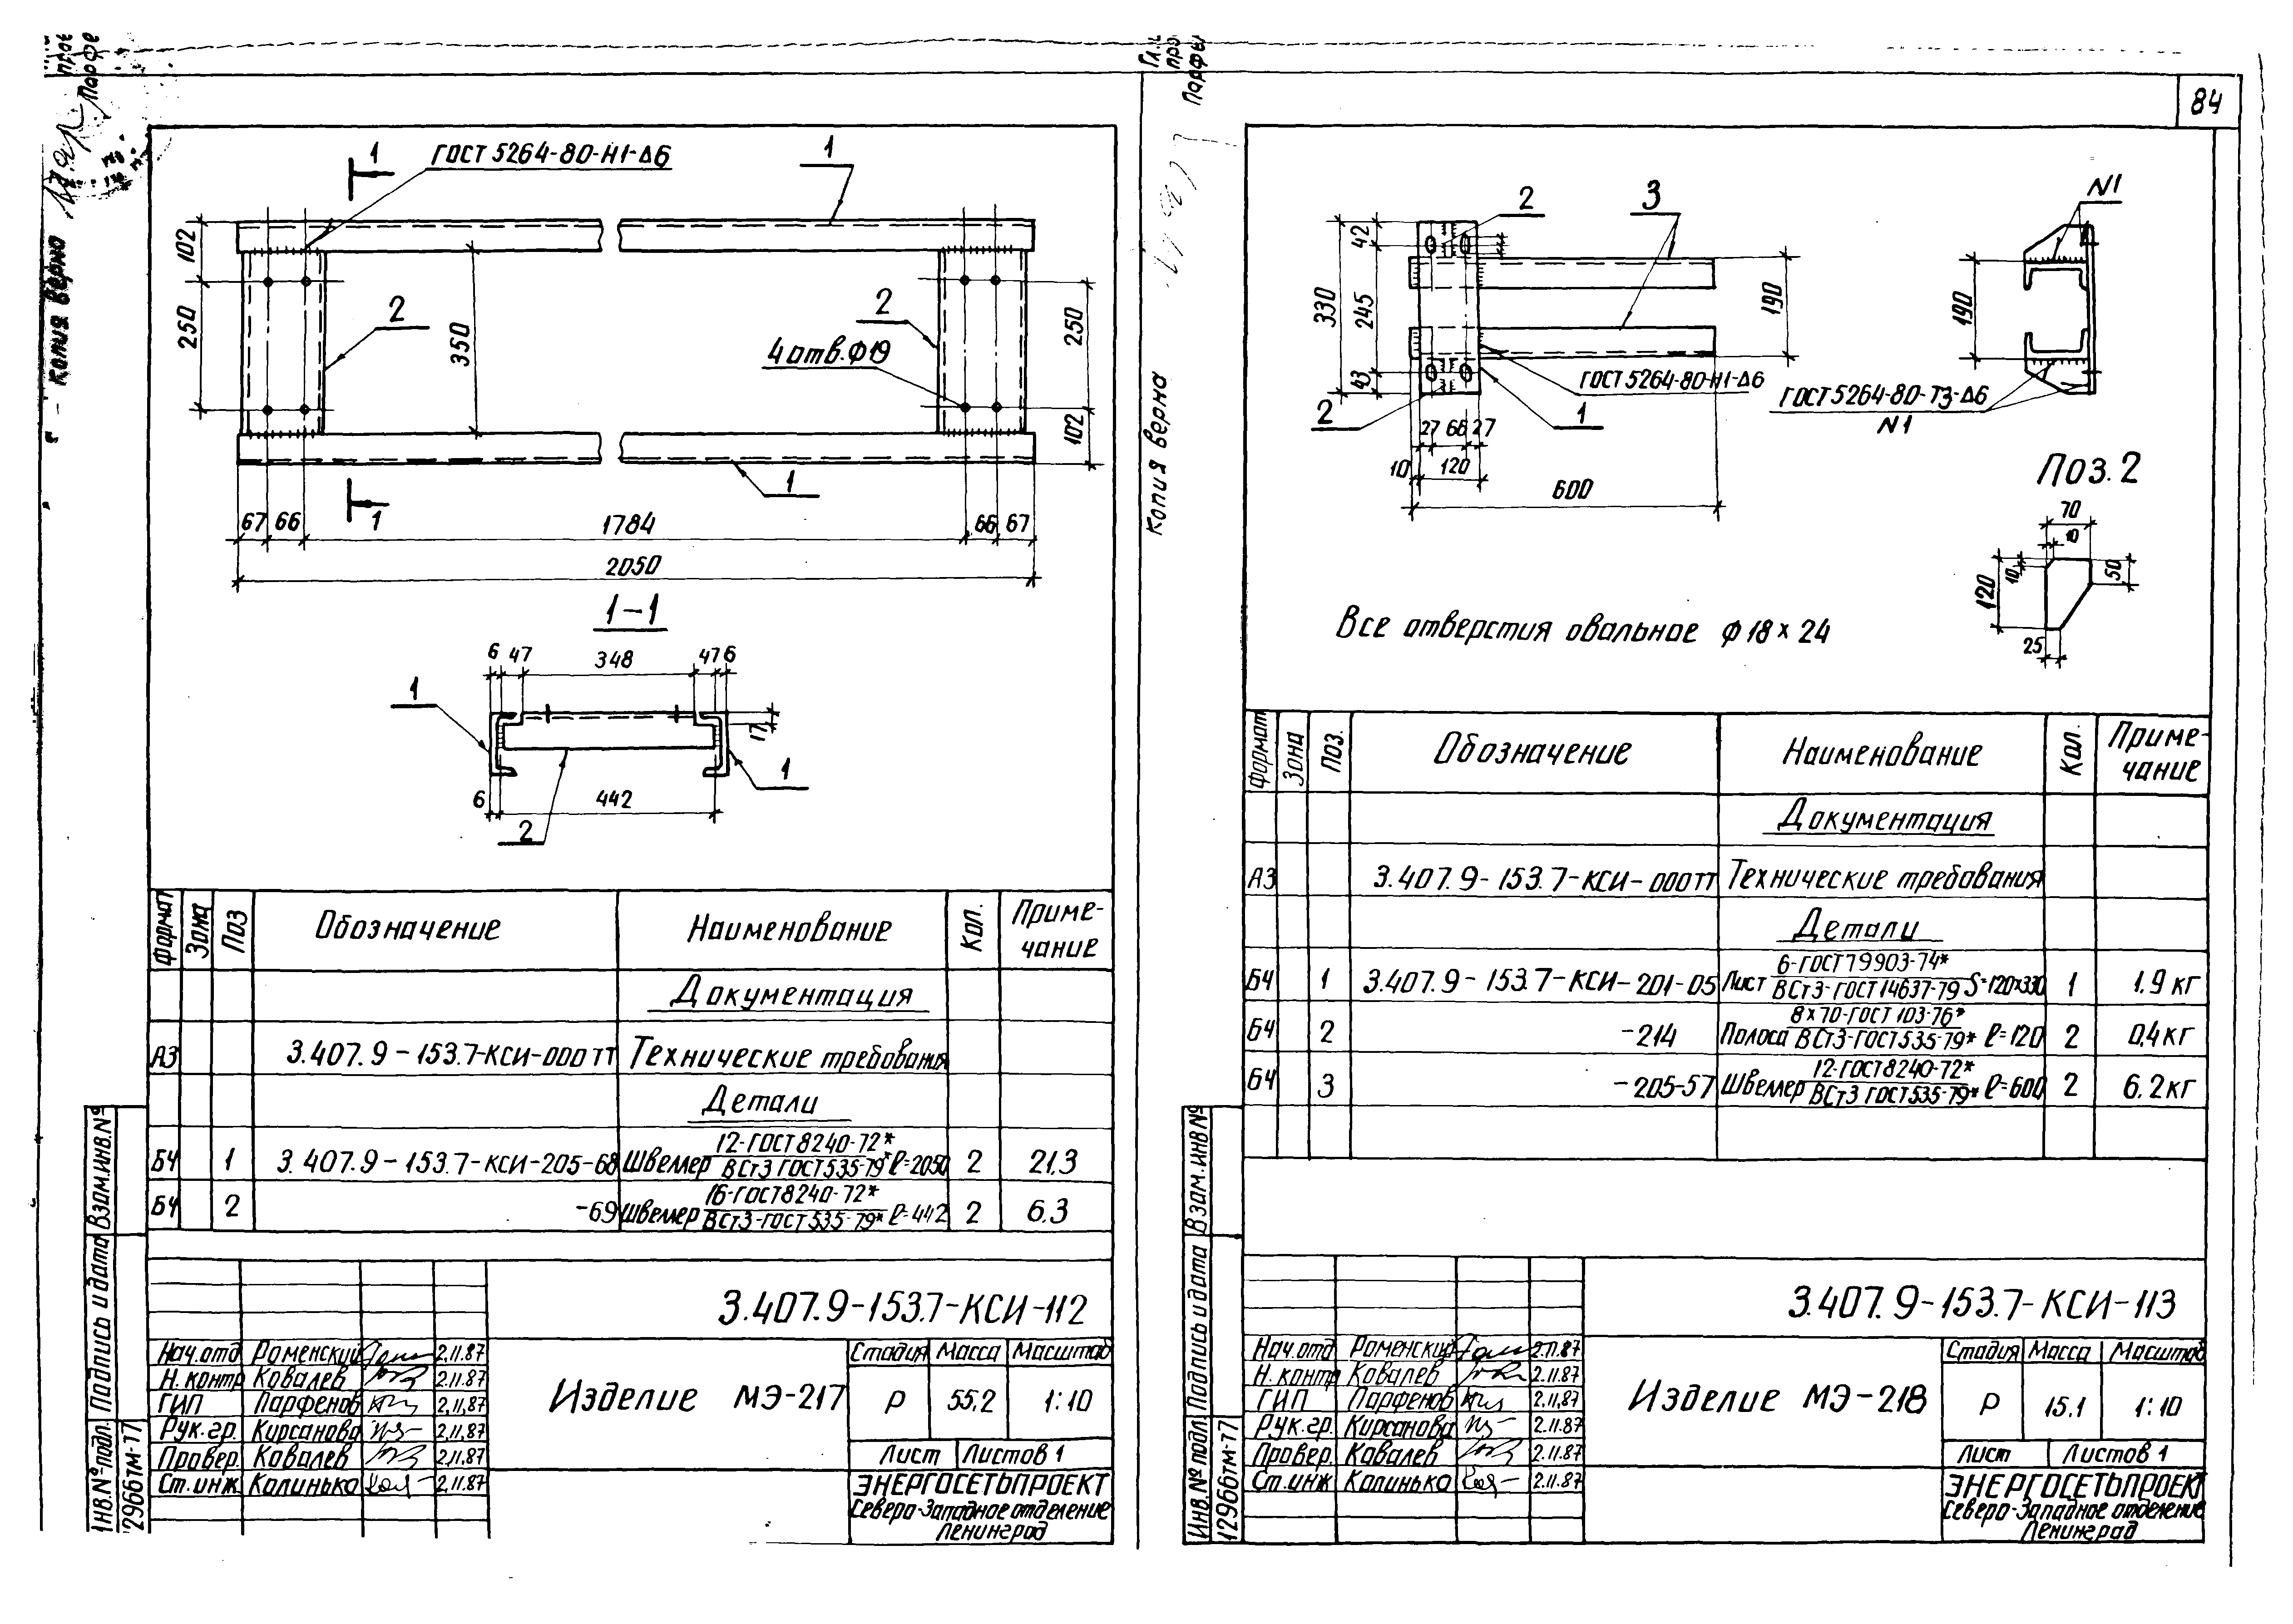 84
Копия верно
ГОСТ 5264-80-Н1-Δ6
1
1
102
250
350
2
2
4 отв. Ф19
250
102
1
1
67 66 1784 66 67
2050
1-1
6 47 348 47 6
1
17
1
6 442
2
Формат Зона Поз Обозначение Наименование Кол. Приме-
чание
Документация
А3 3.407.9-153.7-КСИ-000ТТ Технические требования
Детали
БЧ 1 3.407.9-153.7-КСИ-205-68 Швеллер 12-ГОСТ 8240-72*
ВСт3 ГОСТ 535-79* ℓ=2050 2 21.3
БЧ 2 -69 Швеллер 16-ГОСТ 8240-72*
ВСт3-ГОСТ 535-79* ℓ=442 2 6.3
3.407.9-153.7-КСИ-112
Нач.отд Роменский 2.11.87
Н.контр Ковалев 2.11.87
ГИП Парфенов 2.11.87
Рук.гр. Кирсанова 2.11.87
Провер. Ковалев 2.11.87
Ст.инж Калинько 2.11.87
Изделие МЭ-217
Стадия Масса Масштаб
Р 55,2 1:10
Лист Листов 1
ЭНЕРГОСЕТЬПРОЕКТ
Северо-Западное отделение
Ленинград
Взам.инв.№
Подпись и дата
Инв.№ подл.
12966тм-77
Копия верна
2
3
42
330
245
43
190
ГОСТ 5264-80-Н1-Δ6
2
1
27 66 27
10 120
600
N1
190
ГОСТ 5264-80-Т3-Δ6
N1
Поз. 2
70
10
120
10
50
25
Все отверстия овальное ф 18×24
Формат Зона Поз. Обозначение Наименование Кол. Приме-
чание
Документация
А3 3.407.9-153.7-КСИ-000ТТ Технические требования
Детали
БЧ 1 3.407.9-153.7-КСИ-201-05 Лист 6-ГОСТ 19903-74*
ВСт3-ГОСТ 14637-79 S=120×330 1 1.9 кг
БЧ 2 -214 Полоса 8×70-ГОСТ 103-76*
ВСт3-ГОСТ 535-79* ℓ=120 2 0,4 кг
БЧ 3 -205-57 Швеллер 12-ГОСТ 8240-72*
ВСт3 ГОСТ 535-79* ℓ=600 2 6.2 кг
3.407.9-153.7-КСИ-113
Нач.отд Роменский 2.11.87
Н.контр Ковалев 2.11.87
ГИП Парфенов 2.11.87
Рук.гр. Кирсанова 2.11.87
Провер. Ковалев 2.11.87
Ст.инж Калинько 2.11.87
Изделие МЭ-218
Стадия Масса Масштаб
Р 15.1 1:10
Лист Листов 1
ЭНЕРГОСЕТЬПРОЕКТ
Северо-Западное отделение
Ленинград
Взам.инв№
Подпись и дата
Инв.№ подл.
12966тм-77